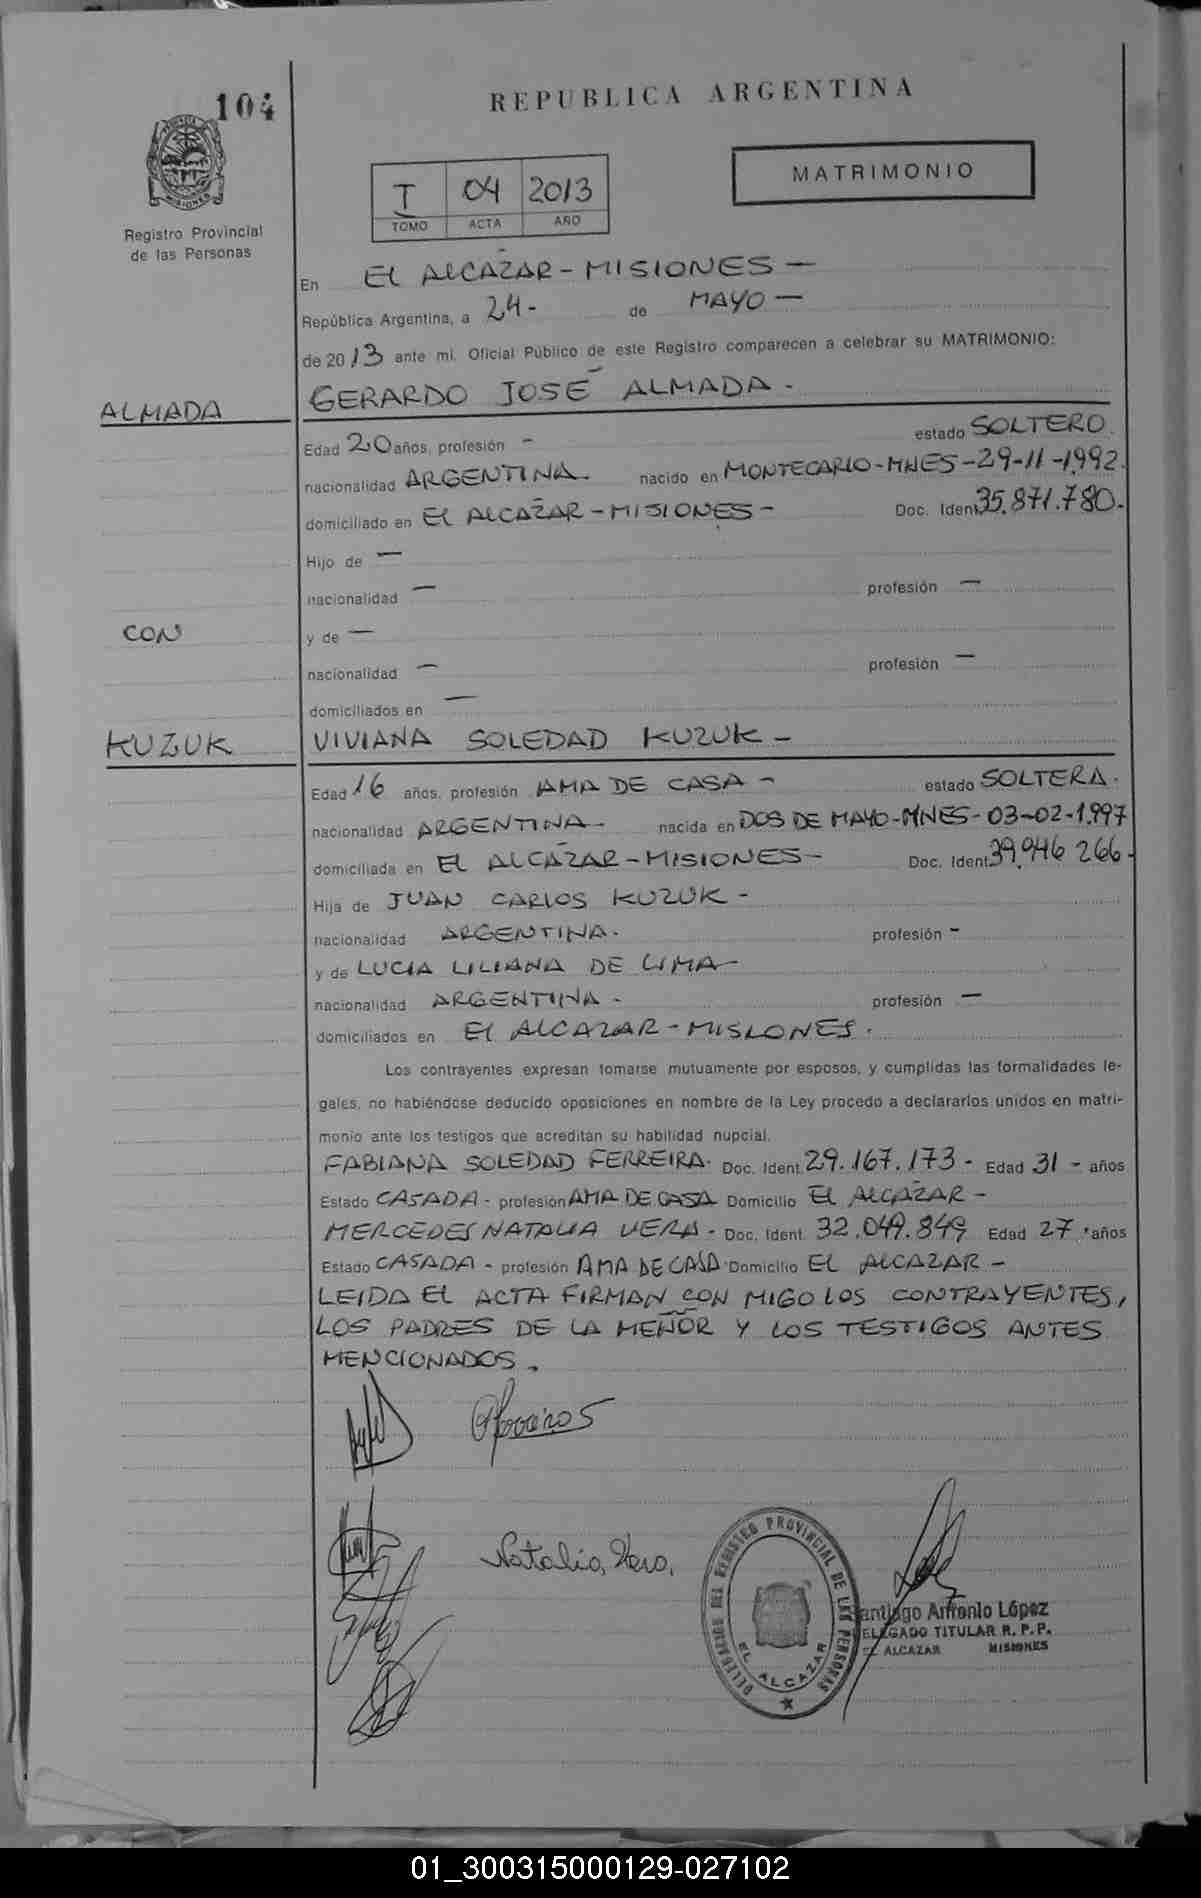 104
REPUBLICA ARGENTINA
MATRIMONIO
MISIONES
Registro Provincial
de las Personas
I 04 2013
TOMO ACTA AÑO
En EL ALCAZAR - MISIONES —
República Argentina, a 24 - de MAYO —
de 2013 ante mí, Oficial Público de este Registro comparecen a celebrar su MATRIMONIO:
ALMADA GERARDO JOSÉ ALMADA -
Edad 20 años, profesión - estado SOLTERO.
nacionalidad ARGENTINA. nacido en MONTECARLO-MNES-29-11-1992.
domiciliado en EL ALCAZAR - MISIONES - Doc. Ident. 35.871.780.-
Hijo de —
nacionalidad — profesión —
CON y de —
nacionalidad — profesión —
domiciliados en —
KUZUK VIVIANA SOLEDAD KUZUK -
Edad 16 años, profesión AMA DE CASA - estado SOLTERA.
nacionalidad ARGENTINA - nacida en DOS DE MAYO-MNES-03-02-1.997
domiciliada en EL ALCAZAR - MISIONES - Doc. Ident. 39.946 266 -
Hija de JUAN CARLOS KUZUK -
nacionalidad ARGENTINA. profesión -
y de LUCIA LILIANA DE LIMA -
nacionalidad ARGENTINA - profesión —
domiciliados en EL ALCAZAR - MISIONES.
Los contrayentes expresan tomarse mutuamente por esposos, y cumplidas las formalidades le-
gales, no habiéndose deducido oposiciones en nombre de la Ley procedo a declararlos unidos en matri-
monio ante los testigos que acreditan su habilidad nupcial.
FABIANA SOLEDAD FERREIRA. Doc. Ident. 29.167.173 - Edad 31 - años
Estado CASADA - profesión AMA DE CASA Domicilio EL ALCAZAR -
MERCEDES NATALIA VERA - Doc. Ident. 32.049.849 Edad 27 años
Estado CASADA - profesión AMA DE CASA Domicilio EL ALCAZAR -
LEIDA EL ACTA FIRMAN CON MIGO LOS CONTRAYENTES,
LOS PADRES DE LA MENOR Y LOS TESTIGOS ANTES
MENCIONADOS.
Natalia Vera,
DELEGACION DEL REGISTRO PROVINCIAL DE LAS PERSONAS
EL ALCAZAR
Santiago Antonio López
DELEGADO TITULAR R. P. P.
EL ALCAZAR MISIONES
01_300315000129-027102